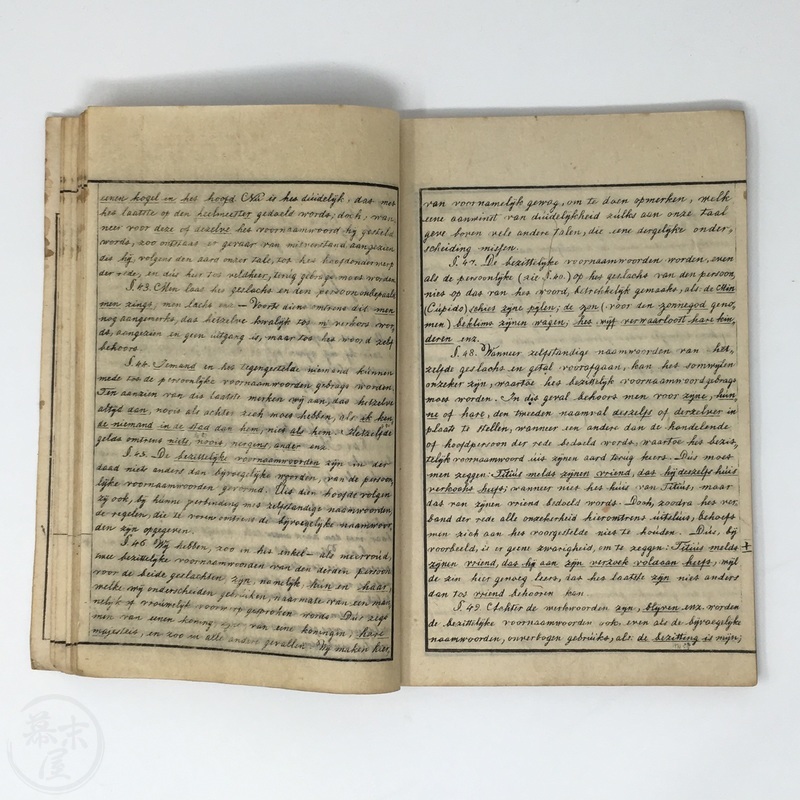 eenen kogel in het hoofd. Nú is het dúidelijk, dat met
het laatste op den heelmeester gedoeld wordt; doch, wan„
neer voor deze of dezelve het voornaamwoord hij gesteld
wordt, zoo ontstaat er gevaar van misverstand aangezien
dit hij, volgens den aard onzer tale, tot het hoofdonderwerp
der rede, en dús hier tot veldheer, terúg gebragt moet worden
§. 43. Men laat het geslacht en den persoon onbepaald
men zingt, men lacht enz — Voorts diene omtrent dit men
nog aangemerkt, dat hetzelve kwalijk tot wij verkort wor„
dt, aangezien en geen uitgang is, maar tot het woord zelf
behoort.
§. 44. Iemand en het tegengestelde niemand kúnnen
mede tot de persoonlijke voornaamwoorden gebragt worden.
Ten aanzien van dit laatste merken wij aan, dat hetzelve
altijd dan, nooit als achter zich moet hebben, als ik ken
de niemand in de stad dan hem, niet als hem. Hetzelfde
geldt omtrent niets, nooit, nergens, ander enz
§. 45. De bezittelijke voornaamwoorden zijn in der
daad niets anders dan bijvoegelijke woorden, van de persoon„
lijke voornaamwoorden gevormd. Uit dien hoofde volgen
zij ook, bij húnne verbinding met zelfstandige naamwoorden,
de regelen, die te voren omtrent de bijvoegelijke naamwoor„
den zijn opgegeven.
§. 46. Wij hebben, zoo in het enkel– als meervoúd,
twee bezittelijke voornaamwoorden van den derden persoon
voor de beide geslachten zijn, namelijk, hún en haar,
welke wij onderscheiden gebrúiken, naar mate van een man„
nelijk of vroúwelijk voorwerp gesproken wordt. Dús zegt
men van eenen koning, van eene koningin, hare
majesteit, en zoo in alle andere gevallen. Wij maken hier,
van voornamelijk gewag, om te doen opmerken, welk
eene aanwinst van dúidelijkheid zúlks aan onze taal
geve boven vele andere talen, die eene dergelijke onder„
scheiding missen.
§. 47. De bezittelijke voornaamwoorden worden, even
als de persoonlijke (zie §. 40.) op het geslacht van den persoon,
niet op dat van het woord, betrekkelijk gemaakt, als: de Min
(Cúpido) schiet zijne pijlen; de zon (voor den zonnegod geno„
men) beklimt zijnen wagen; het wijf verwaarloost hare kin„
deren enz.
§. 48. Wanneer zelfstandige naamwoorden van het„
zelfde geslacht en getal voorafgaan, kan het somwijlen
onzeker zijn, waartoe het bezittelijk voornaamwoord gebragt
moet worden. In dit geval behoort men voor zijne, hún„
ne of hare, den tweeden naamval deszelfs of derzelver in
plaats te stellen, wanneer een ander dan de handelende
of hoofdpersoon der rede bedoeld wordt, waartoe het bezit„
telijk voornaamwoord úit zijnen aard terúg keert. Dús moet
men zeggen: Titiús meldt zijnen vriend, dat hij deszelfs húis
verkocht heeft; wanneer niet het húis van Titiús, maar
dat van zijnen vriend bedoeld wordt. Doch, zoodra het ver„
band der rede alle onzekerheid hieromtrent úitslúit, behoeft
men zich aan het voorgestelde niet te hoúden. Dús, bij
voorbeeld, is er geene zwarigheid, om te zeggen: Titiús meldt
zijnen vriend, dat hij aan zijn verzoek voldaan heeft, wijl
de zin hier genoeg leert, dat het laatste zijn niet anders
dan tot vriend behooren kan.
§. 49. Achter de werkwoorden zijn, blijven enz worden
de bezittelijke voornaamwoorden ook, even als de bijvoegelijke
naamwoorden, onverbogen gebrúikt, als: de bezitting is mijn;
幕末屋